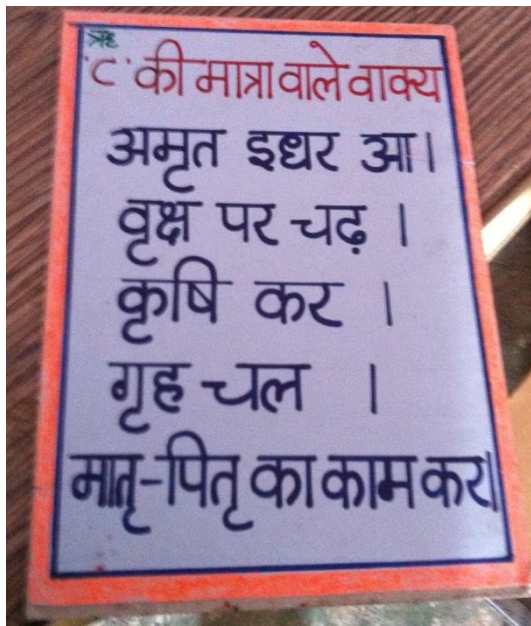 ऋ
'ृ' की मात्रा वाले वाक्य
अमृत इधर आ।
वृक्ष पर चढ़ ।
कृषि कर ।
गृह चल ।
मातृ-पितृ का काम कर।